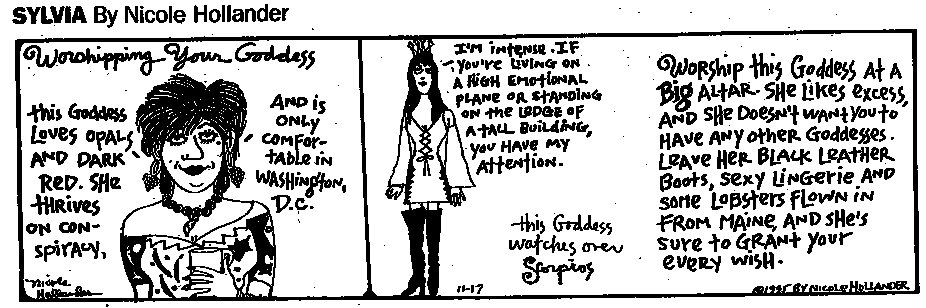 SYLVIA By Nicole Hollander
Worshipping Your Goddess
this Goddess
Loves opals
AND DARK
RED. SHe
tHRives
on con-
spiracy,
AND is
only
comfor-
table in
WASHington,
D.C.
Nicole
Hollander
I'm intense. IF
you're Living on
A High emotional
PLANE OR STANDING
on the LeDGe of
A tALL Building,
you HAVE my
Attention.
this Goddess
watches over
Scorpios
11-17
Worship this Goddess At A
Big ALtAR. SHe Likes excess,
AND SHe Doesn't WANt You to
HAVe Any otHeR GoDDesses.
LeAve HeR BLACK LeAtHeR
Boots, Sexy LinGerie AND
Some LoBsteRs FLown in
FRom MAine, AND sHe's
sure to GRANt your
eveRy wisH.
©1995 By Nicole HOLLANDER